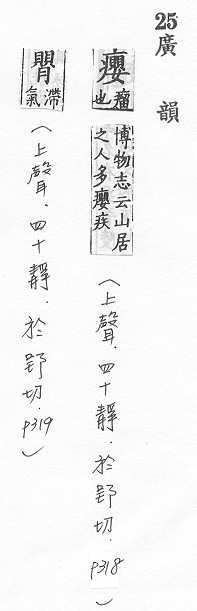 25廣韻
癭 瘤也 博物志云山居之人多癭疾 (上聲.四十靜.於郢切.P318)
𦠿 滯氣 (上聲.四十靜.於郢切.P319)